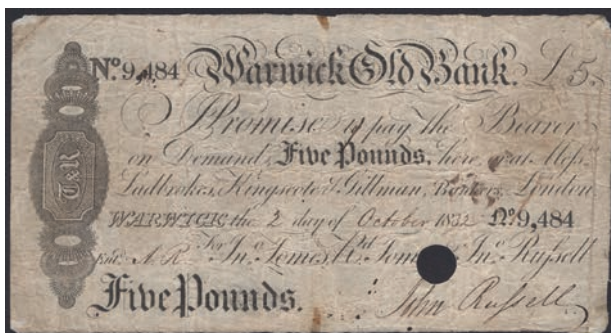 No. 9,484 Warwick Old Bank. £5.
I Promise to pay the Bearer
on Demand, Five Pounds, here or at Mess.
Ladbrokes, Kingscote & Gillman, Bankers, London
WARWICK the 2 day of October 1832 No. 9,484
Ent. A. R. For Jno. Tomes, Jno. Russell
Five Pounds. John Russell
T&R